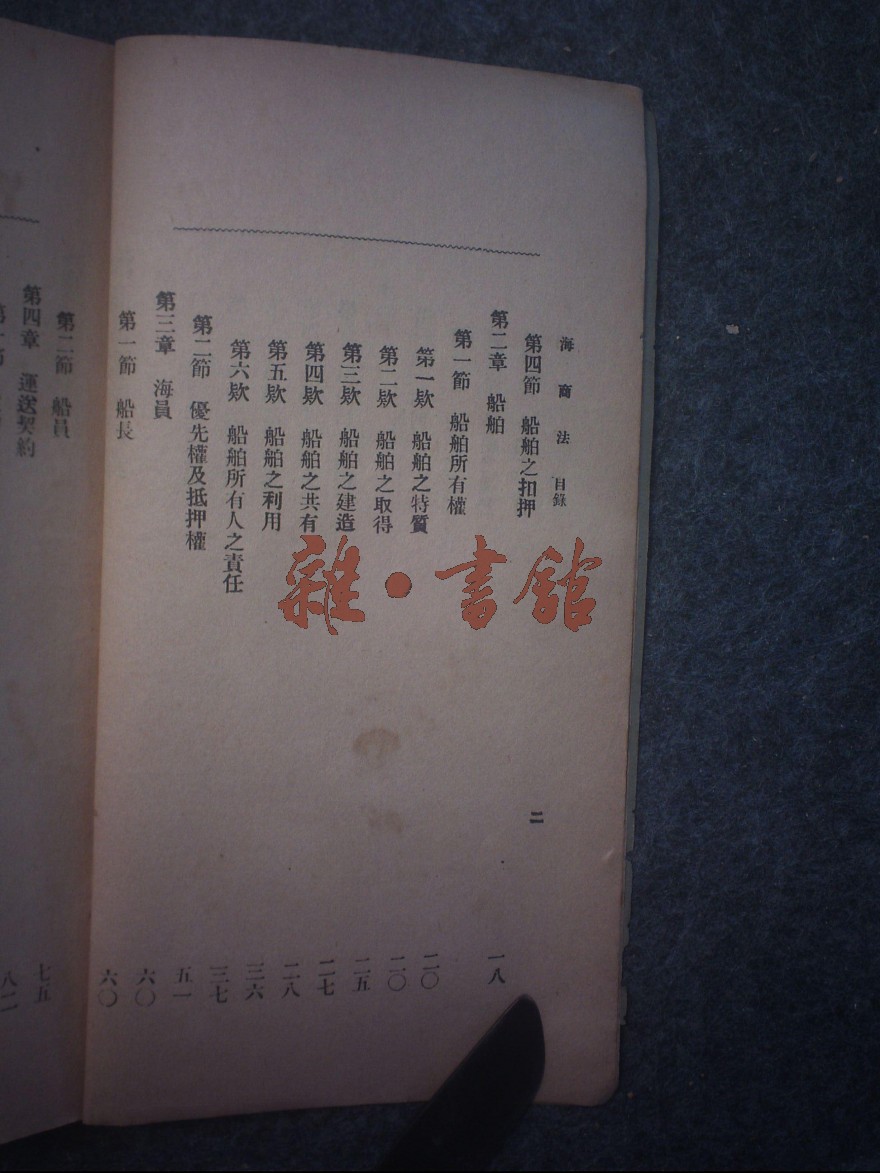 海商法 目錄
二
第四節 船舶之扣押 一八
第二章 船舶
第一節 船舶所有權 二〇
第一欵 船舶之特質 二〇
第二欵 船舶之取得 二五
第三欵 船舶之建造 二七
第四欵 船舶之共有 二八
第五欵 船舶之利用 三六
第六欵 船舶所有人之責任 三七
第二節 優先權及抵押權 五一
第三章 海員 六〇
第一節 船長 六〇
第二節 船員 七五
第四章 運送契約 八二
雜·書館